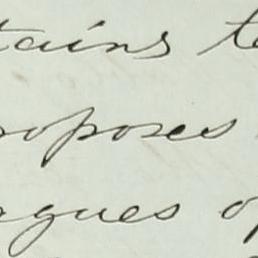 tains te
roposes
agues of